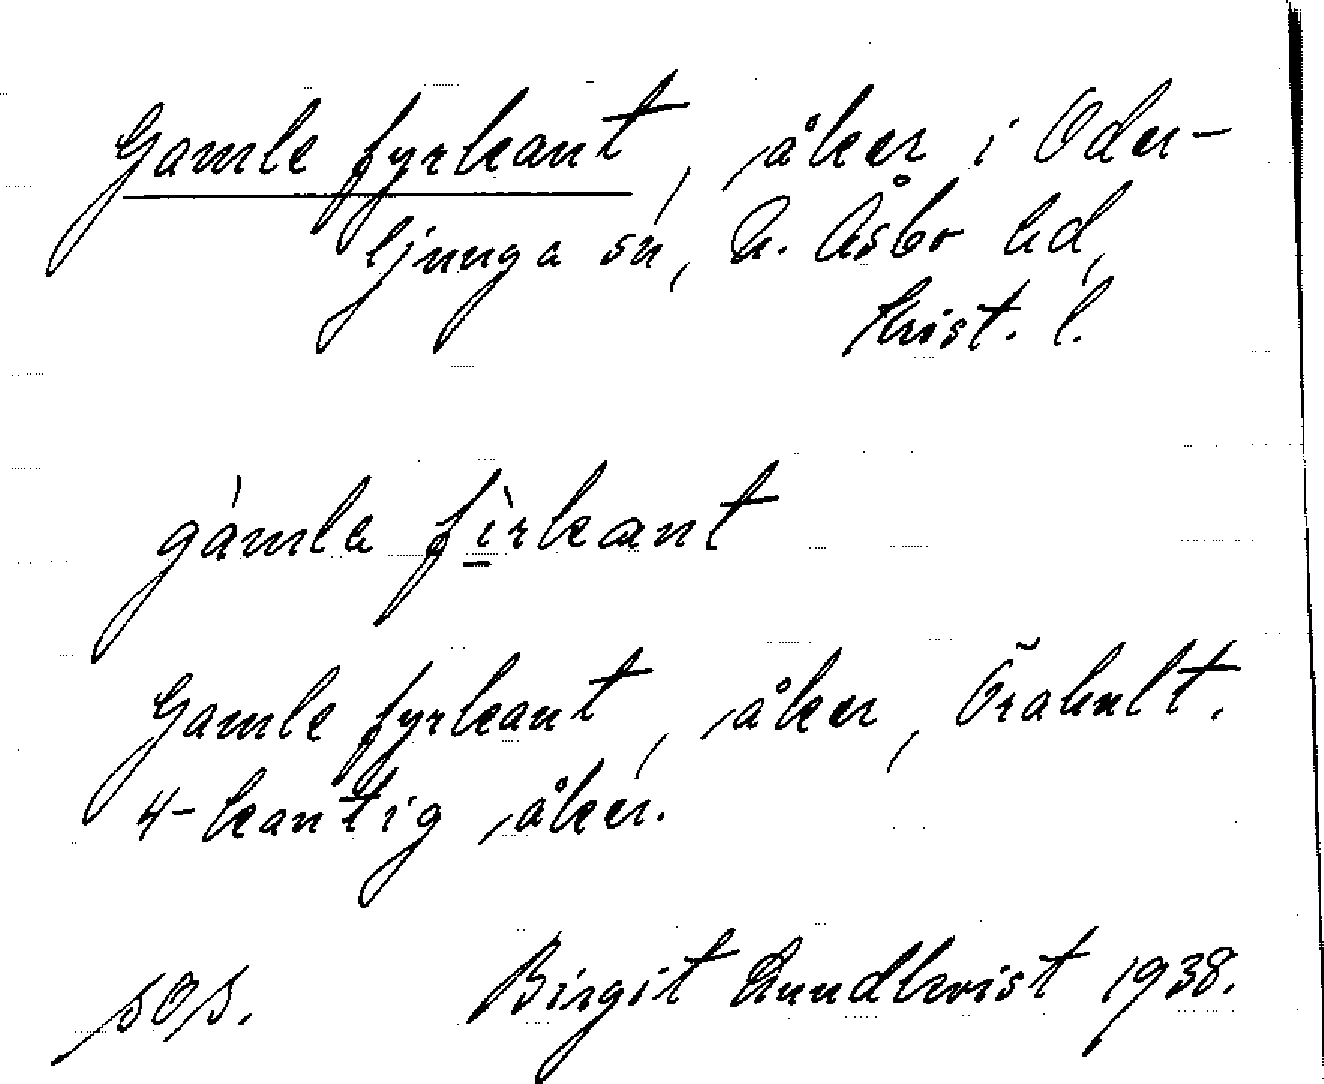 Gamle fyrkant, åker i Oder-
ljunga sn, N. Åsbo hd,
Krist. l.
gámla fìrkant
Gamle fyrkant, åker, Örahult.
4-kantig åker.
Birgit Lundkvist 1938.